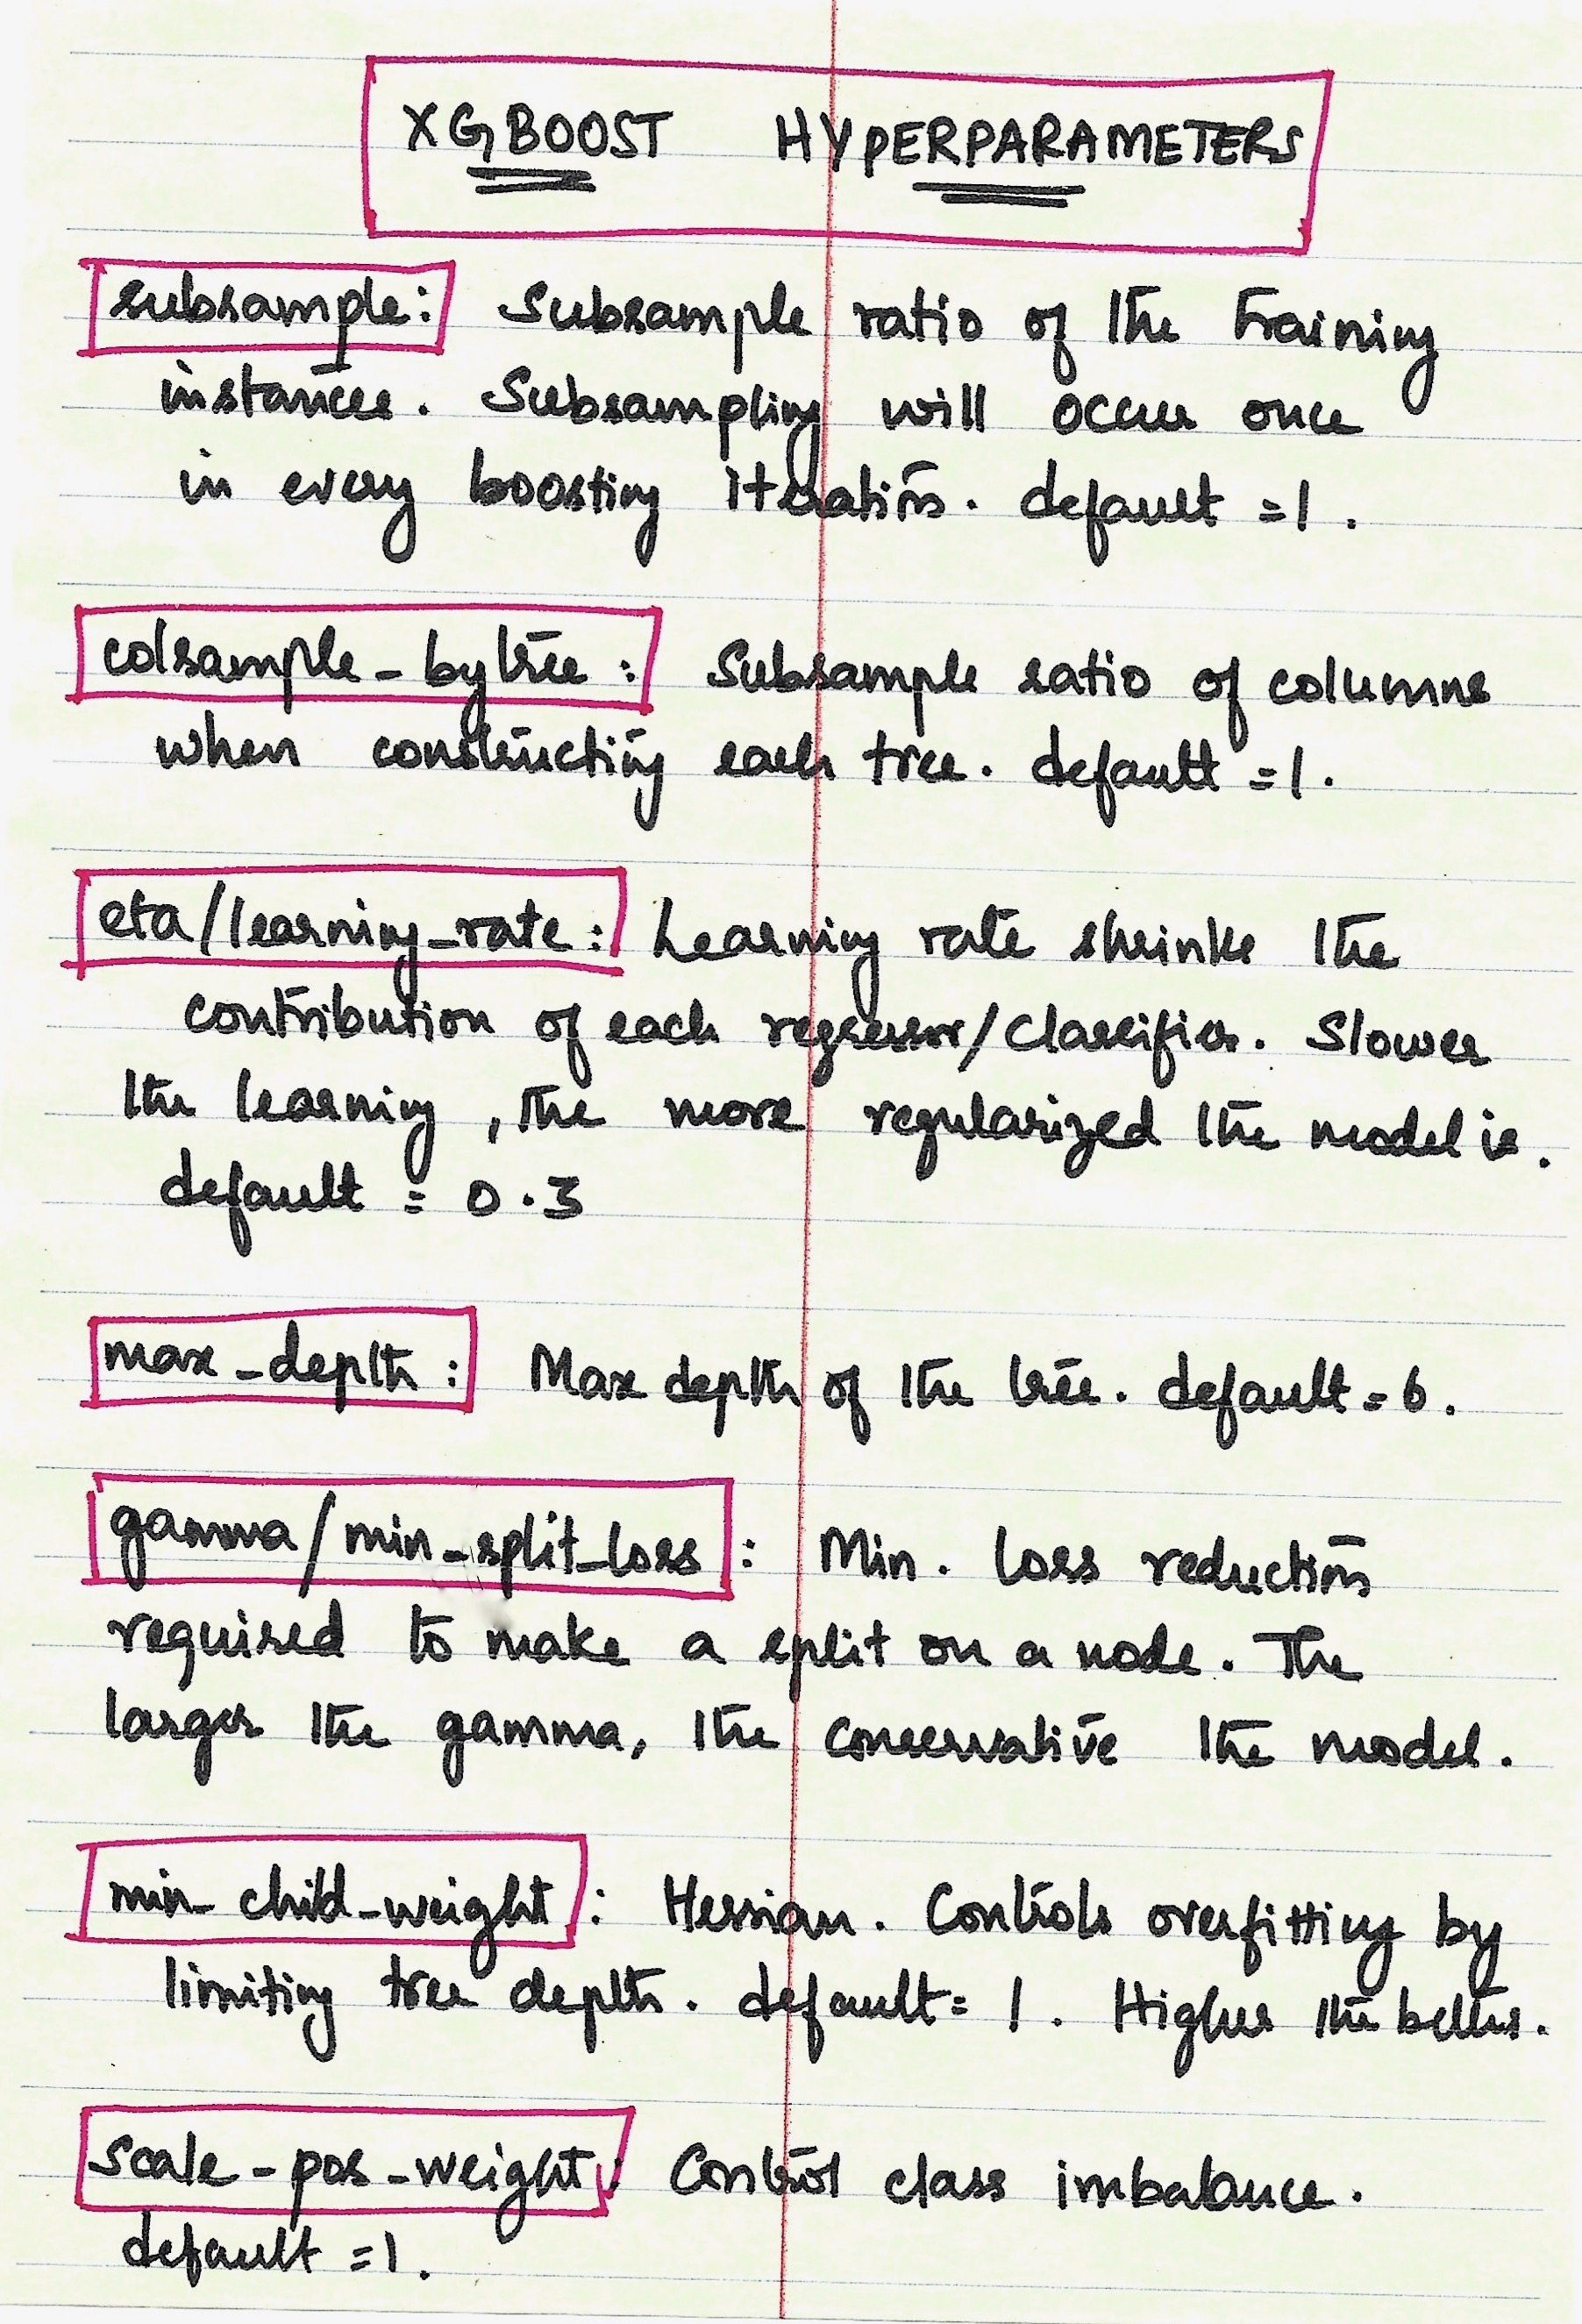 XGBOOST HYPERPARAMETERS
subsample: Subsample ratio of the training
instances. Subsampling will occur once
in every boosting iteration. default =1.
colsample_bytree: Subsample ratio of columns
when constructing each tree. default =1.
eta/learning_rate: Learning rate shrinks the
contribution of each regressor/classifier. Slower
the learning, the more regularized the model is.
default = 0.3
max_depth: Max depth of the tree. default = 6.
gamma/min_split_loss: Min. loss reduction
required to make a split on a node. The
larger the gamma, the conservative the model.
min_child_weight: Hessian. Controls overfitting by
limiting tree depth. default = 1. Higher the better.
scale_pos_weight: Control class imbalance.
default =1.